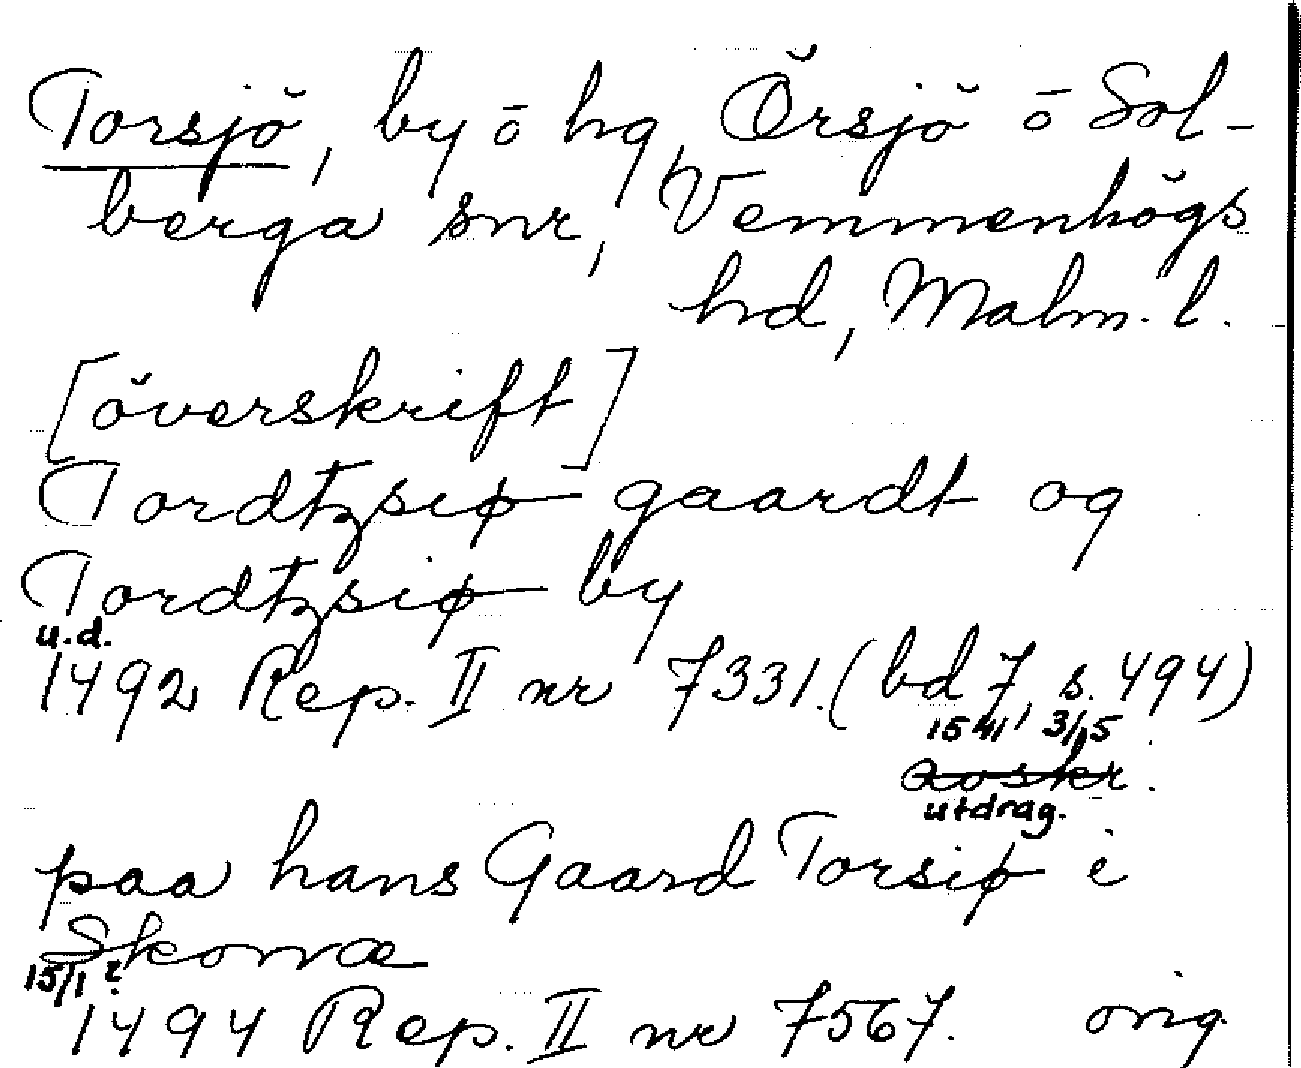 Torsjö, by o hg, Örsjö o Sol-
berga snr, Vemmenhögs
hd, Malm. l.
[överskrift]
Tordtzsiø gaardt og
Tordtzsiø by
u.d.
1492 Rep. II nr 7331. (bd 7, s. 494)
1541 3/15
avskr.
utdrag.
paa hans Gaard Torsiø i
Skonæ
15/1 ?
1494 Rep. II nr 7567. orig.